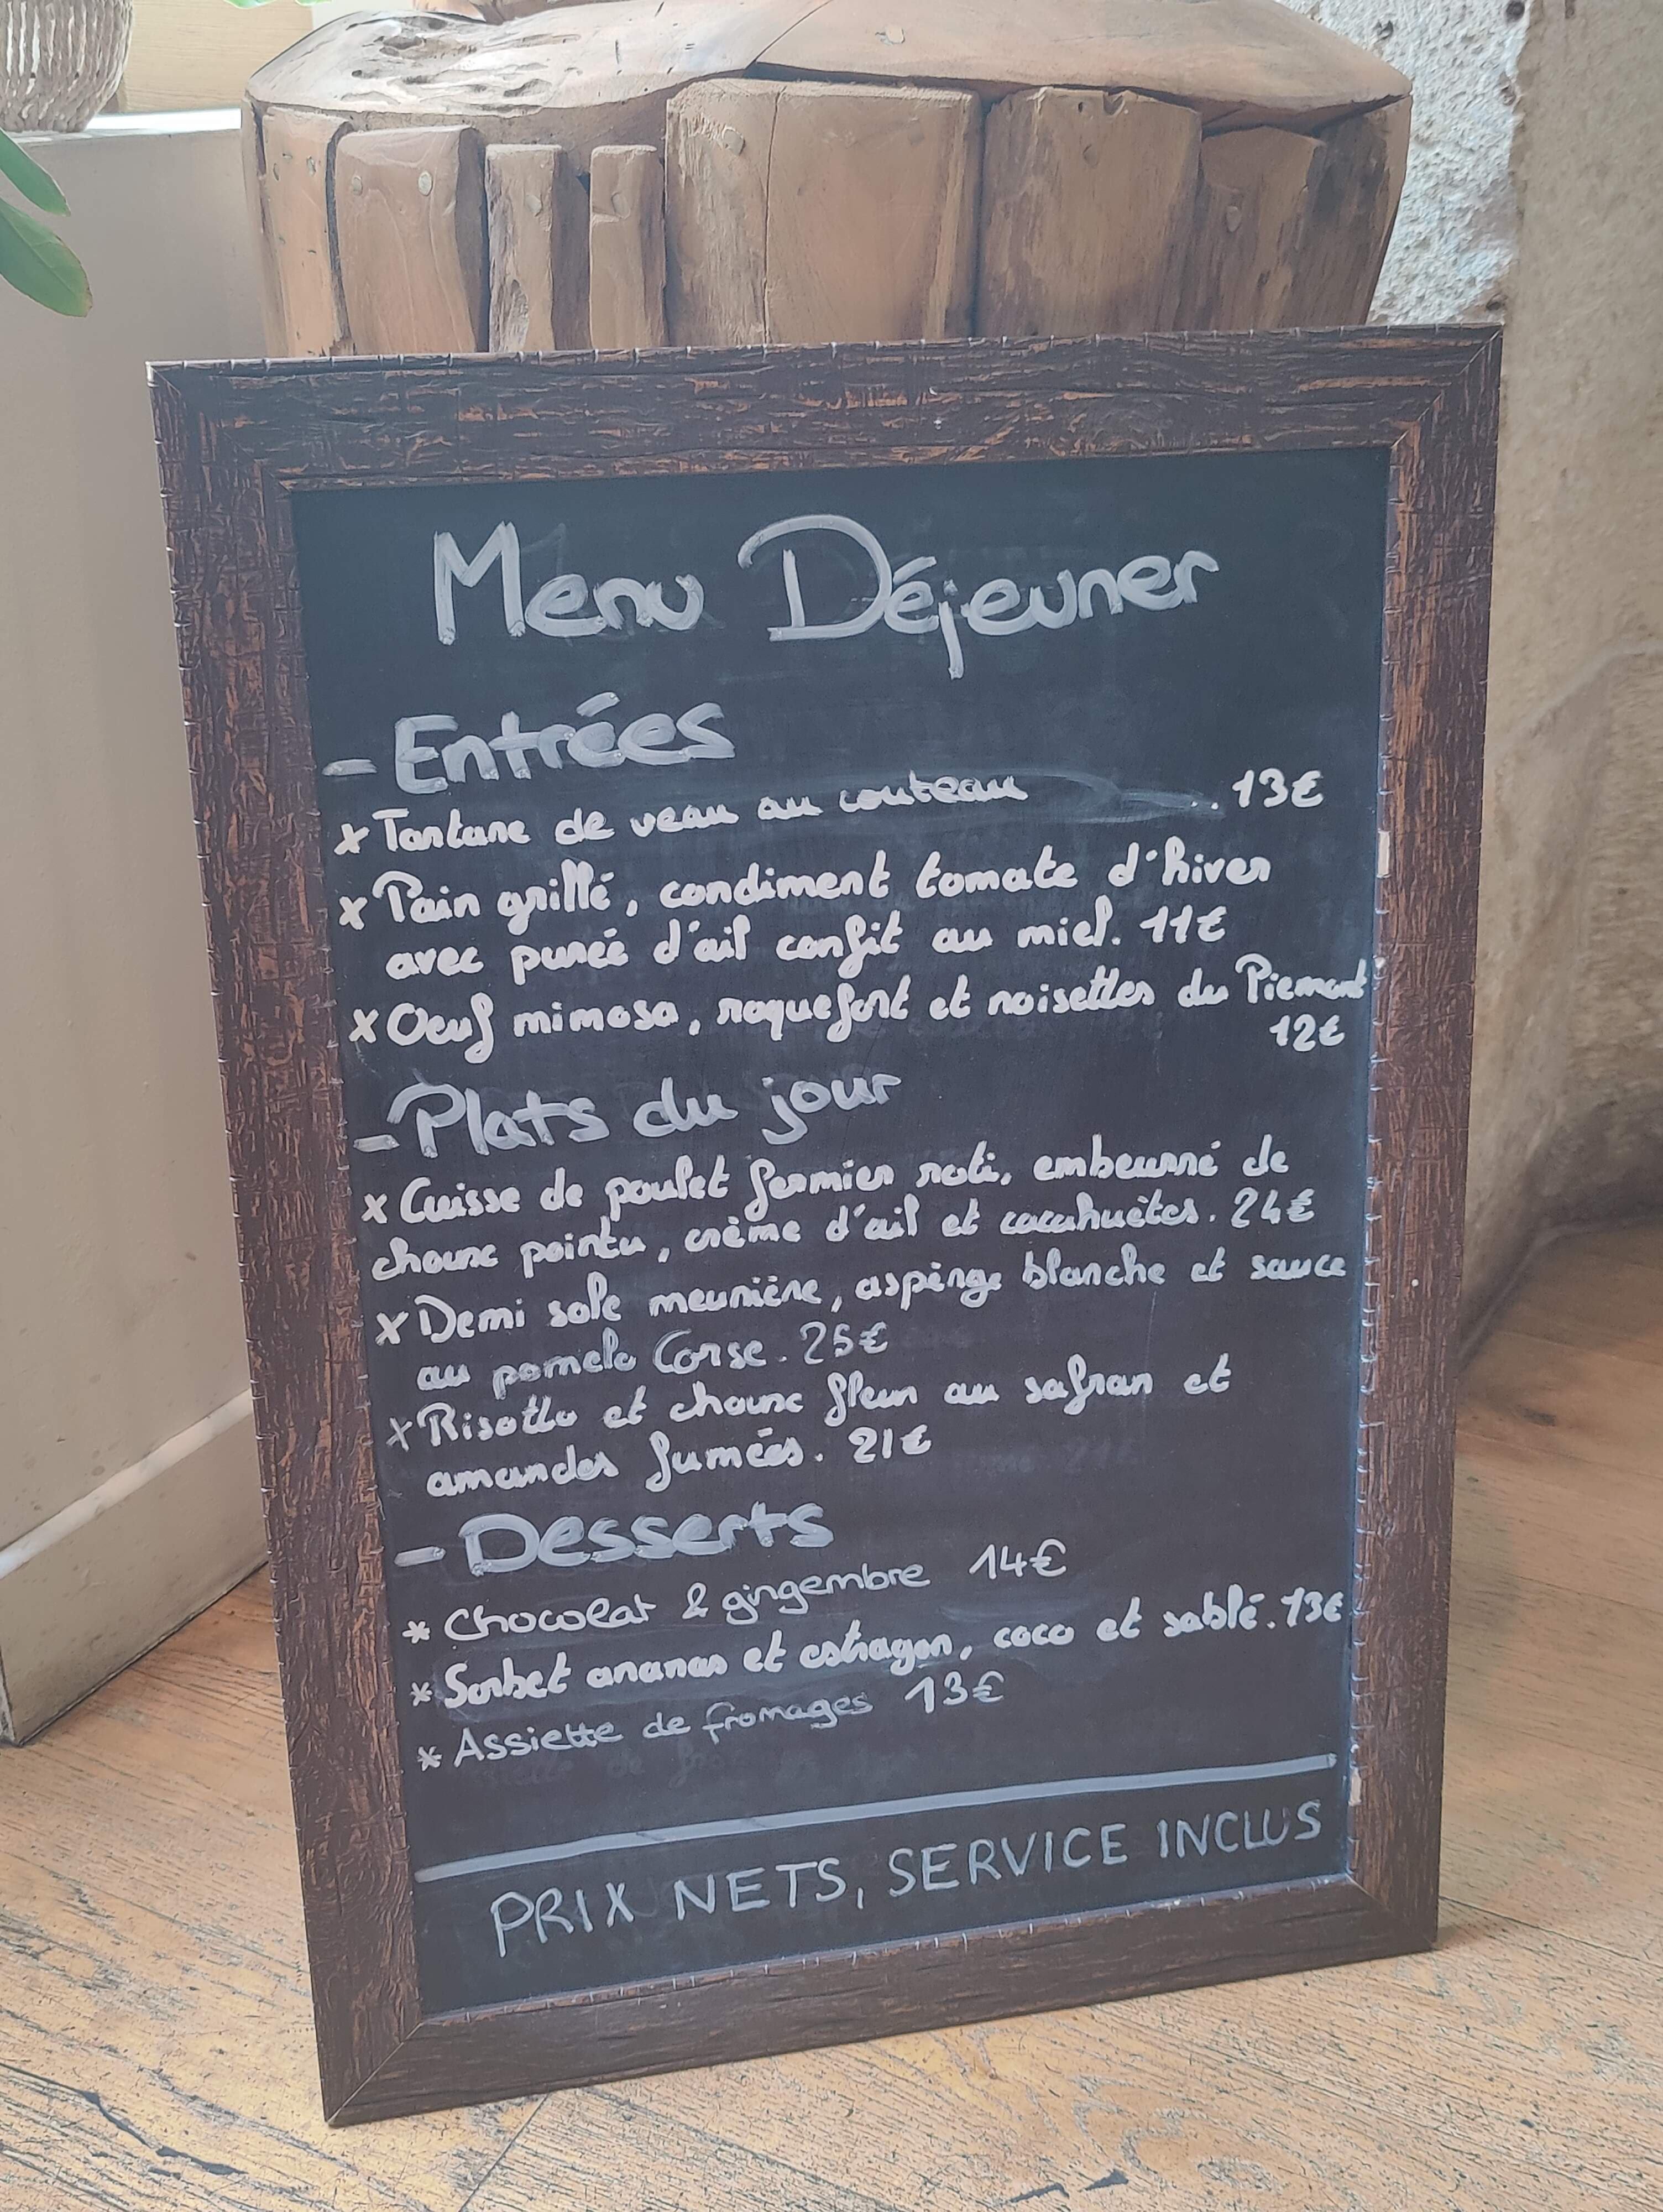 Menu Déjeuner
- Entrées
x Tartare de veau au couteau .. 13€
x Pain grillé, condiment tomate d'hiver
avec purée d'ail confit au miel. 11€
x Oeuf mimosa, roquefort et noisettes du Piemont
12€
- Plats du jour
x Cuisse de poulet fermier roti, embeurré de
choux pointu, crème d'ail et cacahuètes. 24€
x Demi sole meunière, asperge blanche et sauce
au pomelo Corse. 25€
x Risotto et choux fleur au safran et
amandes fumées. 21€
- Desserts
* Chocolat & gingembre 14€
* Sorbet ananas et estragon, coco et sablé. 13€
* Assiette de fromages 13€
PRIX NETS, SERVICE INCLUS